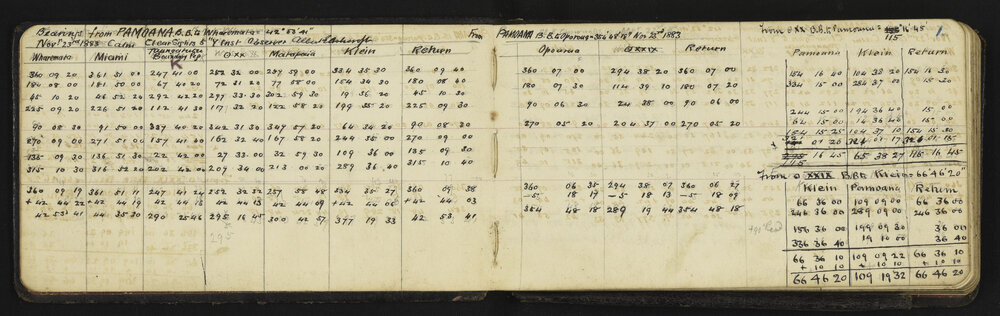 Bearings from PAMOANA B.B. to Wharomata = 42° 53' 41"
Nov. 23rd 1883 Calm Clear Sights 5" Y Inst Observer
Wharomata Miami Boundary Peg ⊙XX Matapaia Klein Return
360 09 20 361 51 00 247 41 00 252 32 00 257 59 00 334 35 30 360 09 40
180 08 00 181 50 00 67 40 20 72 31 20 77 58 00 154 34 30 180 08 40
45 10 20 46 52 20 292 42 20 297 33 30 302 59 30 19 36 20 45 10 30
225 09 20 226 51 20 112 41 30 117 32 20 122 58 20 199 35 20 225 09 30
90 08 30 91 50 00 337 40 20 342 31 30 347 57 20 64 34 20 90 08 30
270 09 00 271 51 00 157 41 00 162 32 40 167 58 20 249 35 00 270 09 00
135 09 30 136 51 30 22 42 00 27 33 00 32 59 30 109 36 00 135 09 30
315 10 30 316 52 20 202 42 00 207 34 00 213 00 20 289 36 40 315 10 40
360 09 19 361 51 11 247 41 24 252 32 52 257 58 48 334 35 27 360 09 38
+42 44 22 +42 44 19 +42 44 16 +42 44 13 +42 44 09 +42 44 06 +42 44 03
42 53 41 44 35 30 290 25 46 295 16 45 300 42 57 377 19 33 42 53 41
295
From PAMOANA B.B. to Oporau = 354° 48' 18" Nov 23rd 1883
Oporau ⊙XXIX Return
360 07 00 294 38 20 360 07 00
180 07 30 114 39 10 180 07 20
90 06 30 24 38 00 90 06 00
270 05 20 204 37 00 270 05 20
360 06 35 294 38 07 360 06 27
-5 18 17 -5 18 13 -5 18 09
354 48 18 289 19 44 354 48 18
From ⊙XX B.B. to Pamoana = 115 16 45 1.
Pamoana Klein Return
154 16 40 104 38 20 154 16 30
334 15 00 284 37 00 15 30
244 15 00 194 36 40 15 00
62 15 00 14 36 40 15 00
154 15 25 104 37 10 154 15 30
115 16 45 65 38 27 115 16 45
From ⊙ XXIX B.B. to Klein = 66 46 20"
Klein Pamoana Return
66 36 00 109 09 00 66 36 00
246 36 00 289 09 00 246 36 00
156 36 00 199 09 30 36 00
336 36 40 19 10 00 36 40
66 36 10 109 09 22 66 36 10
+ 10 10 + 10 10 + 10 10
66 46 20 109 19 32 66 46 20